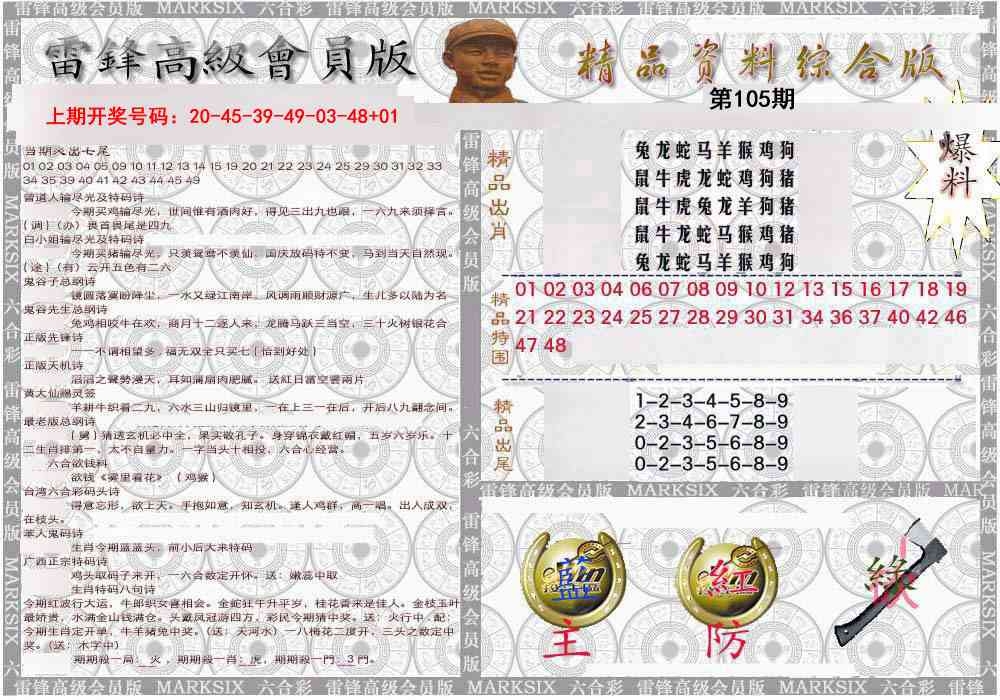 雷锋高级会员版 MARKSIX 六合彩 雷锋高级会员版 MARKSIX 六合彩 雷锋高级会员版 MARKSIX 六合彩 雷锋
雷鋒高級會員版
精品资料综合版
第105期
上期开奖号码：20-45-39-49-03-48+01
当期灵出七尾
01 02 03 04 05 09 10 11 12 13 14 15 19 20 21 22 23 24 25 29 30 31 32 33
34 35 39 40 41 42 43 44 45 49
曾道人输尽光及特码诗
今期买鸡输尽光，世间惟有酒肉好，得见三出九也跟，一六九来须择言。
{调}（办）畏首畏尾是四九
白小姐输尽光及特码诗
今期买猪输尽光，只羡鸳鸯不羡仙，国庆放码特不变，马到当天自然现。
{途}（有）云开五色有二六
鬼谷子总纲诗
镜圆落寞盼降尘，一水又绿江南岸。风调雨顺财源广，生儿多以陆为名
鬼谷先生总纲诗
兔鸡相咬牛在欢，商月十二逐人来，龙腾马跃三当空，三十火树银花合
正版先锋诗
一一不谓相望多，福无双全只买七{恰到好处}
正版天机诗
滔滔之聲勢漫天，耳如蒲扇肉肥腻。 送紅日富空雲兩片
黄大仙赐灵签
羊耕牛织看二九，六水三山归镜里，一在上三一在后，开后八九翻念间。
最老版总纲诗
{舅}猜送玄机必中全，果实敬孔子。身穿锦衣戴红帽，五岁六岁乐。十
二生肖排第一，太不自量力。一字当头十相投，六合心经营。
六合欲钱料
欲钱《雾里看花》（鸡猴）
台湾六合彩码头诗
得意忘形，欲上天。手抱如意，知玄机。逢人鸡群，高一唱。出入成双，
在枝头。
本人鬼码诗
生肖今期蓝蓝头，前小后大来特码
广西正宗特码诗
鸡头取码子来开，一六合数定开怀。送：嫩蕊中取
生肖特码八句诗
今期红波行大运，牛郎织女喜相会。金蛇狂午升平岁，桂花香来是佳人。金枝玉叶
最娇贵，水满金山钱满仓。头戴凤冠游四方，彩民今期猜中奖。送：火行中．配：
今期生肖定开单，牛羊猪兔中奖。（送：天河水）一八梅花二度开，三头之数定中
奖。（送：木字中）
期期殺一局：火 ，期期殺一肖：虎，期期殺一門：3門。
精品出肖
兔龙蛇马羊猴鸡狗
鼠牛虎龙蛇鸡狗猪
鼠牛虎兔龙羊狗猪
鼠牛龙蛇马猴鸡猪
兔龙蛇马羊猴鸡狗
爆料
精品特围
01 02 03 04 06 07 08 09 10 12 13 15 16 17 18 19
21 22 23 24 25 27 28 29 30 31 34 36 37 40 42 46
47 48
精品出尾
1-2-3-4-5-8-9
2-3-4-6-7-8-9
0-2-3-5-6-8-9
0-2-3-5-6-8-9
雷锋高级会员版 MARKSIX 六合彩 雷锋高级会员版 MAR
藍
主
紅
防
綠
雷锋高级会员版 MARKSIX 六合彩 雷锋高级会员版 MARKSIX 六合彩 雷锋高级会员版 MARKSIX 六合彩 雷锋